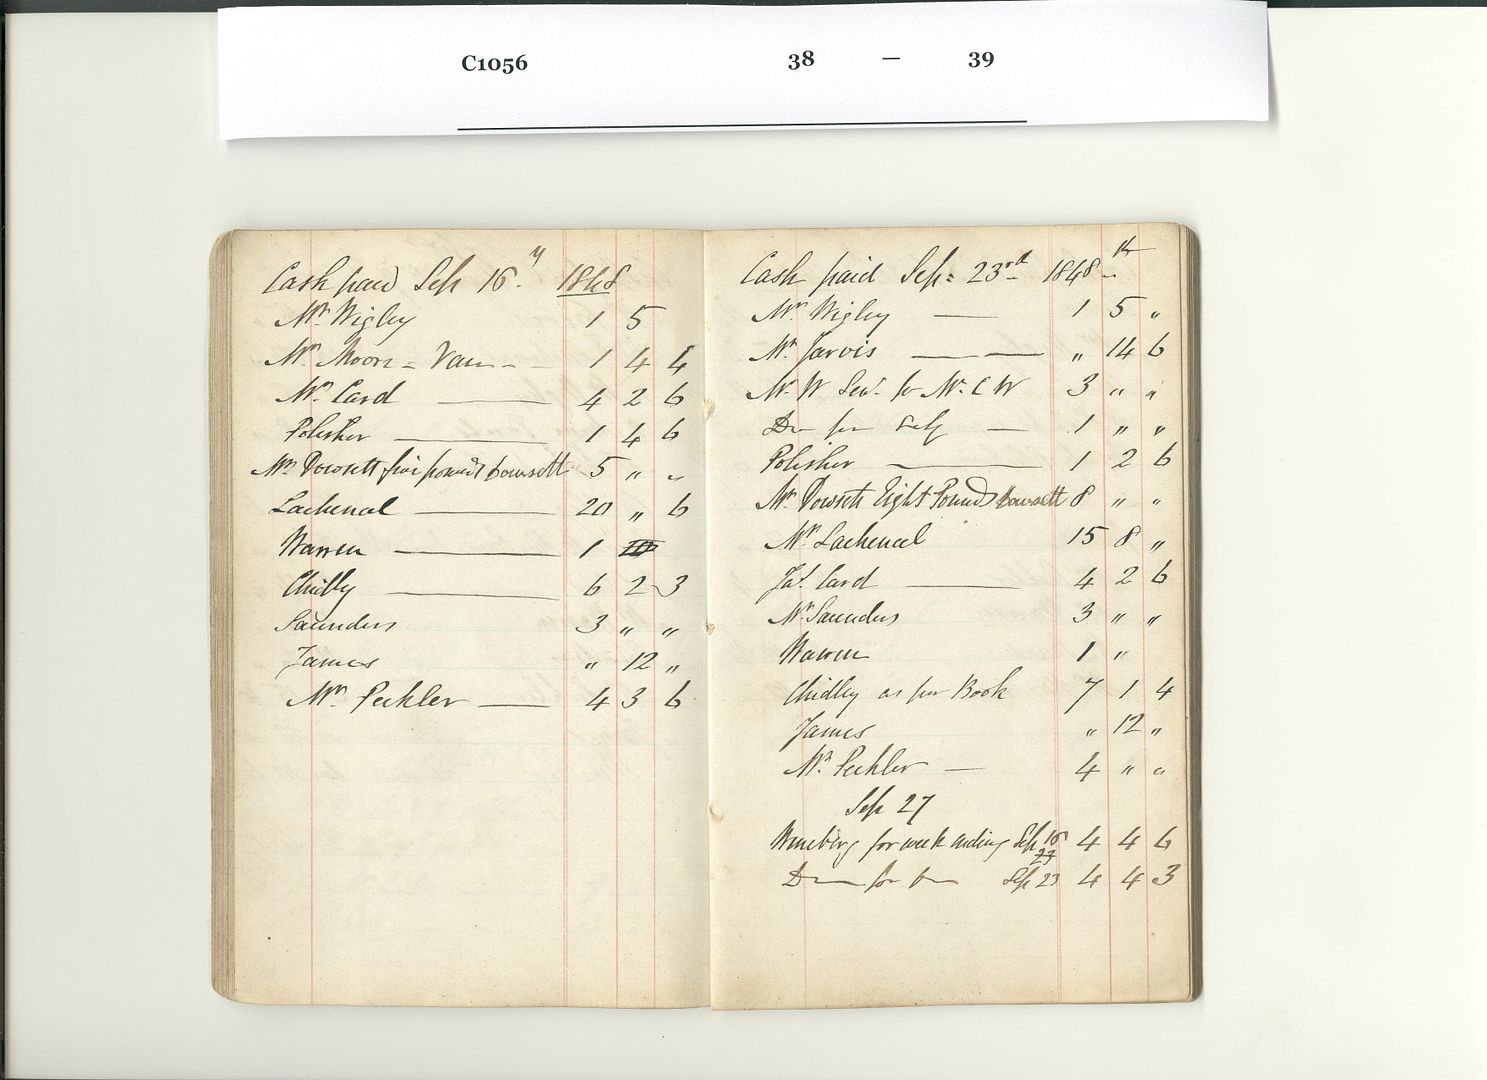 C1056 38 — 39
Cash paid Sep 16 1848
Mr. Wigley 1 5
Mr. Moore = Van 1 4 4
Mr. Card 4 2 6
Polisher 1 4 6
Mr. Dowsett five pounds Dowsett 5 " "
Lachenal 20 " 6
Warren 1
Chidly 6 2 3
Saunders 3 " "
James " 12 "
Mr. Peckler 4 3 6
Cash paid Sep: 23rd 1848
Mr. Wigley 1 5 "
Mr. Jarvis " 14 6
Mr. W Senr. for Mr. C W 3 " "
Do for Self 1 " "
Polisher 1 2 6
Mr. Dowsett Eight Pounds Dowsett 8 " "
Mr. Lachenal 15 8 "
Jas. Card 4 2 6
Mr. Saunders 3 " "
Warren 1 "
Chidley as per Book 7 1 4
James " 12 "
Mr. Peckler 4 " "
Sep 27
for week ending Sep 16 4 4 6
23
Do for Do Sep 23 4 4 3